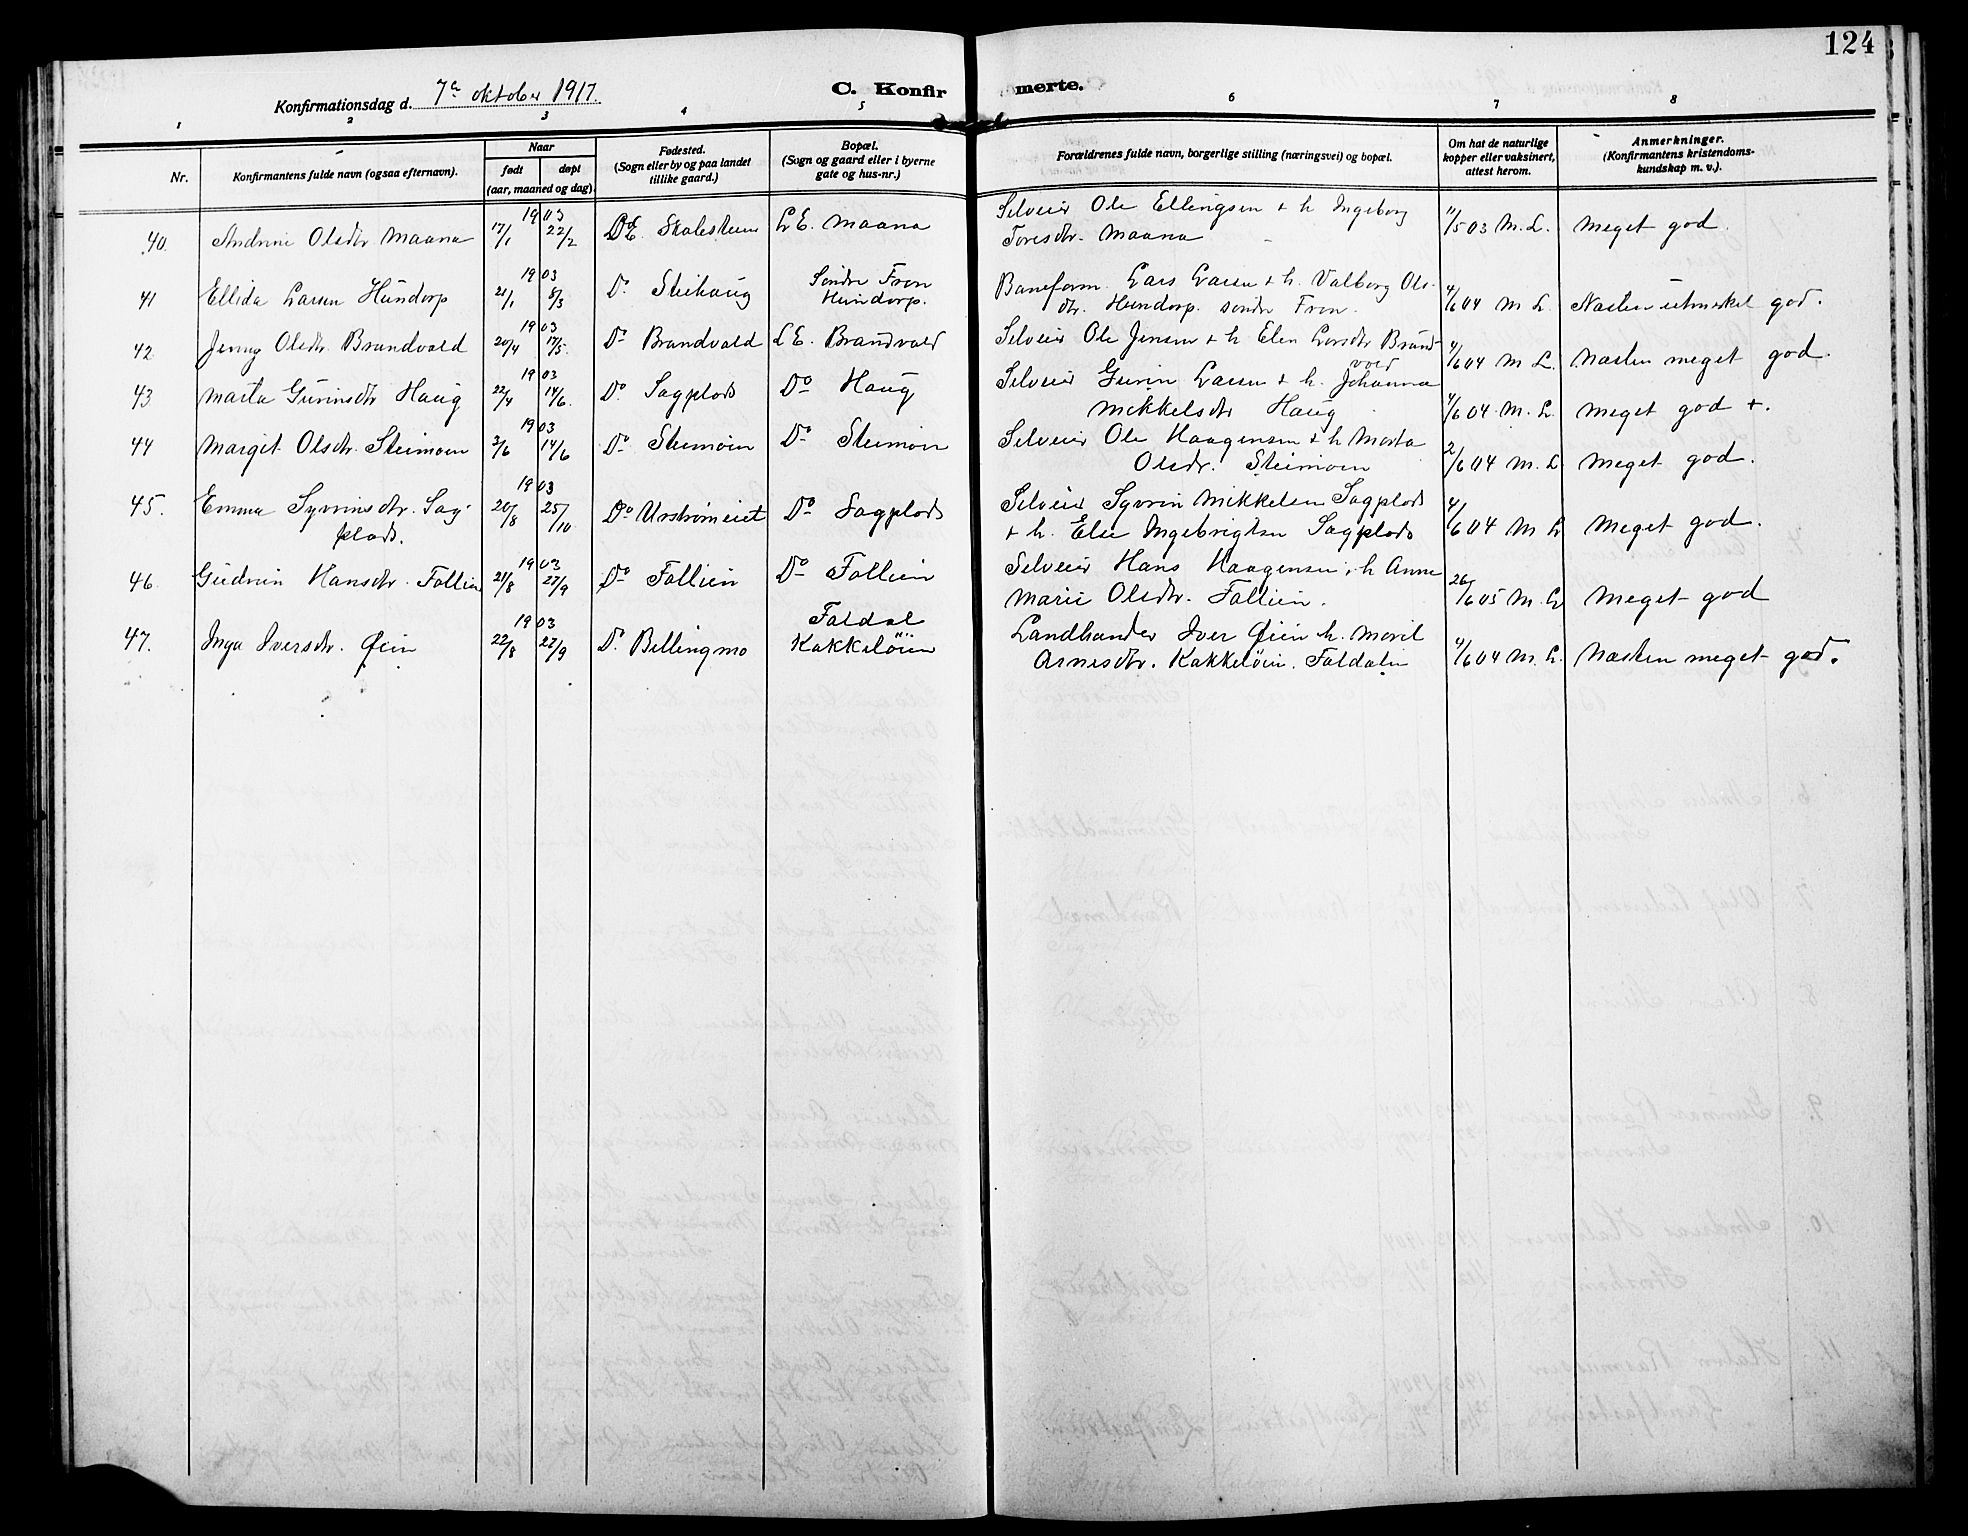 124
Konfirmationsdag d. 7de oktober 1917.
C. Konfirmerte.
1 2 3 4 5 6 7 8
Nr.
Konfirmantens fulde navn (ogsaa efternavn).
Naar
født døpt
(aar, maaned og dag).
Fødested.
(Sogn eller by og paa landet
tillike gaard.)
Bopæl.
(Sogn og gaard eller i byerne
gate og hus-nr.)
Forældrenes fulde navn, borgerlige stilling (næringsvei) og bopæl.
Om hat de naturlige
kopper eller vaksinert,
attest herom.
Anmerkninger.
(Konfirmantens kristendoms-
kundskap m. v.).
1903 Selveier Ole Ellingsen + h Ingeborg
40. Andrine Olsdtr Maana 17/1 22/2 L E. Maana Toresdtr. Maana 11/5 03 M. L. Meget god.
1903 Søndre Fron Baneform. Lars Larsen + h. Valborg Ols-
41 Ellida Larsen Hundorp 21/1 8/3 Do Steihaug Hundorp. dtr. Hundorp. søndre Fron. 4/6 04 M L. Næsten utmerket god.
1903 Selveier Ole Jensen + h Elen Larsdtr Brand-
42. Jenny Olsdtr. Brandvold 20/4 17/5. Do Brandvold L E. Brandvold vold 4/6 04 M L. Næsten meget god.
1903 Selveier Gurin Larsen + h. Johanna
43 Marta Gurinsdtr Haug 22/4 14/6. Do Sagplads Do Haug Mikkelsdtr Haug 4/6 04. M. L. Meget god +.
1903 Selveier Ole Haagensen + h Marta
44 Margit Olsdtr. Steimoen 3/6 14/6 Do Steimoen Do Steimoen Olsdtr. Steimoen 2/6 04 M. L Meget god.
1903 Selveier Syvrin Mikkelsen Sagplads
45. Emma Syvrinsdtr. Sag- 20/8 25/10 Do Do Sagplads + h. Elie Ingebrigtsen Sagplads 4/6 04 M L Meget god.
plads.
1903 Selveier Hans Haagensen + h Anne
46. Gudrun Hansdtr. Follien 21/8 27/9 Do Follien Do Follien Marie Olsdtr. Follien. 26/6 05 M. L Meget god
1903 Foldal Landhandler Iver Øien h. Marit
47. Inga Iversdtr. Øien 22/8 27/9 Do Billingmo Kakkeløien Arnesdtr. Kakkeløien. Foldalen 4/6 04 M. L. Næsten meget god.